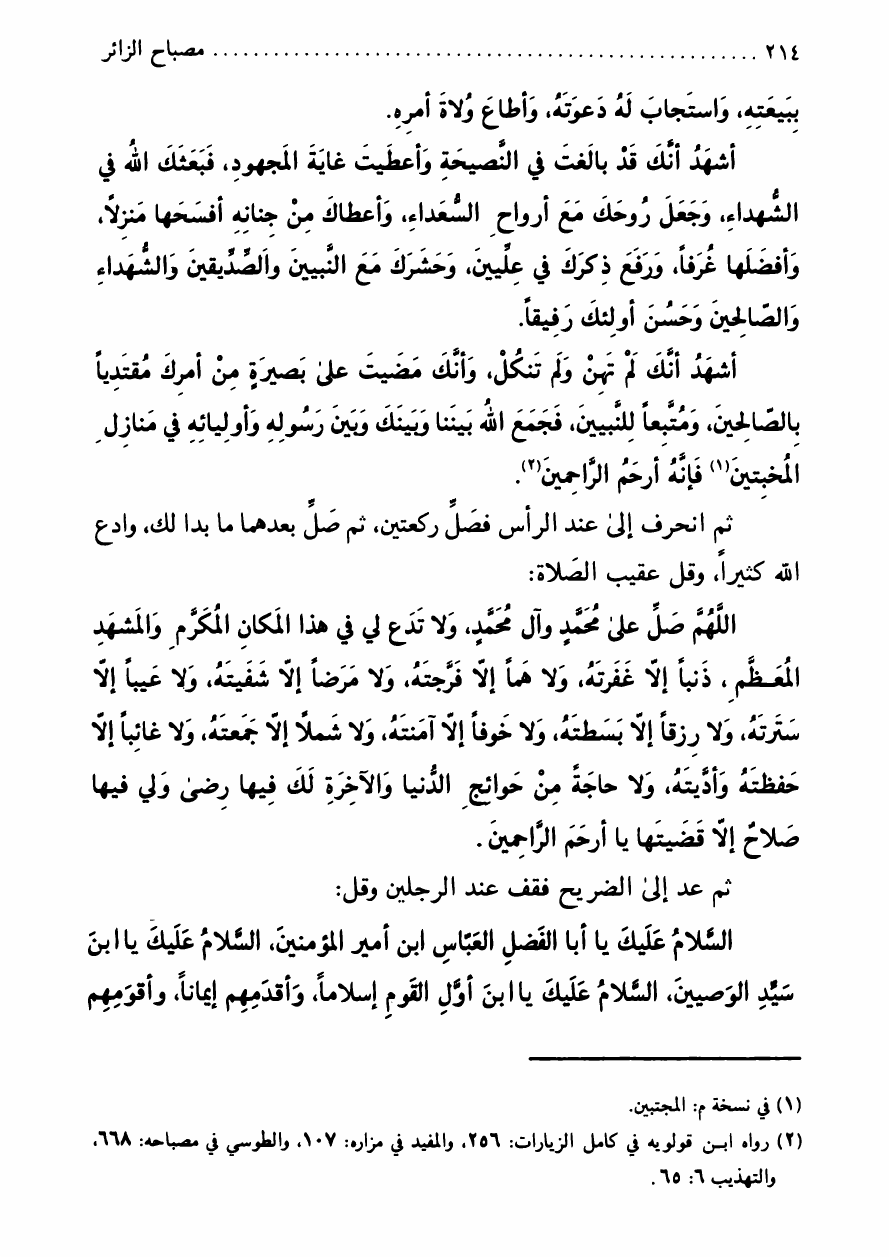 ٢١٤ ........................................................ مصباح الزائر
بِبَيعَتِهِ، وَاستَجابَ لَهُ دَعوَتَهُ، وَأطاعَ وُلاةَ أمرِهِ.
أشهَدُ أنَّكَ قَدْ بالَغتَ في النَّصيحَةِ وَأعطَيتَ غايَةَ المَجهودِ، فَبَعَثَكَ اللهُ في
الشُّهداءِ، وَجَعَلَ رُوحَكَ مَعَ أرواحِ السُّعَداءِ، وَأعطاكَ مِنْ جِنانِهِ أفسَحَها مَنزِلاً،
وَأفضَلَها غُرَفاً، وَرَفَعَ ذِكرَكَ في عِلِّيينَ، وَحَشَرَكَ مَعَ النَّبيينَ وَالصِّدِّيقينَ وَالشُّهَداءِ
وَالصّالِحينَ وَحَسُنَ أولئكَ رَفيقاً.
أشهَدُ أنَّكَ لَمْ تَهِنْ وَلَم تَنكُلْ، وَأنَّكَ مَضَيتَ علىٰ بَصيرَةٍ مِنْ أمرِكَ مُقتَدِياً
بِالصّالِحينَ، وَمُتَّبِعاً لِلنَّبيينَ، فَجَمَعَ اللهُ بَينَنا وَبَينَكَ وَبَينَ رَسُولِهِ وَأوليائِهِ في مَنازِلِ
المُخبِتينَ(١) فَإنَّهُ أرحَمُ الرَّاحِمينَ(٢).
ثم انحرف إلىٰ عند الرأس فصَلِّ ركعتين، ثم صَلِّ بعدهما ما بدا لك، وادع
الله كثيراً، وقل عقيب الصَلاة:
اللَّهُمَّ صَلِّ علىٰ مُحَمَّدٍ وآلِ مُحَمَّدٍ، وَلا تَدَع لي في هذا المَكانِ المُكَرَّمِ وَالمَشهَدِ
المُعَظَّمِ، ذَنباً إلّا غَفَرتَهُ، وَلا هَماً إلّا فَرَّجتَهُ، وَلا مَرَضاً إلّا شَفَيتَهُ، وَلا عَيباً إلّا
سَتَرتَهُ، وَلا رِزقاً إلّا بَسَطتَهُ، وَلا خَوفاً إلّا آمَنتَهُ، وَلا شَملاً إلّا جَمَعتَهُ، وَلا غائباً إلّا
حَفظتَهُ وَأدَّيتَهُ، وَلا حاجَةً مِنْ حَوائِجِ الدُّنيا وَالآخِرَةِ لَكَ فِيها رِضىٰ وَلي فيها
صَلاحٌ إلّا قَضَيتَها يا أرحَمَ الرَّاحِمينَ.
ثم عد إلىٰ الضريح فقف عند الرجلين وقل:
السَّلامُ عَلَيكَ يا أبا الفَضلِ العَبّاسِ ابن أميرِ المؤمنينَ، السَّلامُ عَلَيكَ يا ابنَ
سَيِّدِ الوَصيينَ، السَّلامُ عَلَيكَ يا ابنَ أوَّلِ القَومِ إسلاماً، وَأقدَمِهِم إيماناً، وأقوَمِهِم
(١) في نسخة م: المجتبين.
(٢) رواه ابن قولويه في كامل الزيارات: ٢٥٦، والمفيد في مزاره: ١٠٧، والطوسي في مصباحه: ٦٦٨،
والتهذيب ٦: ٦٥.